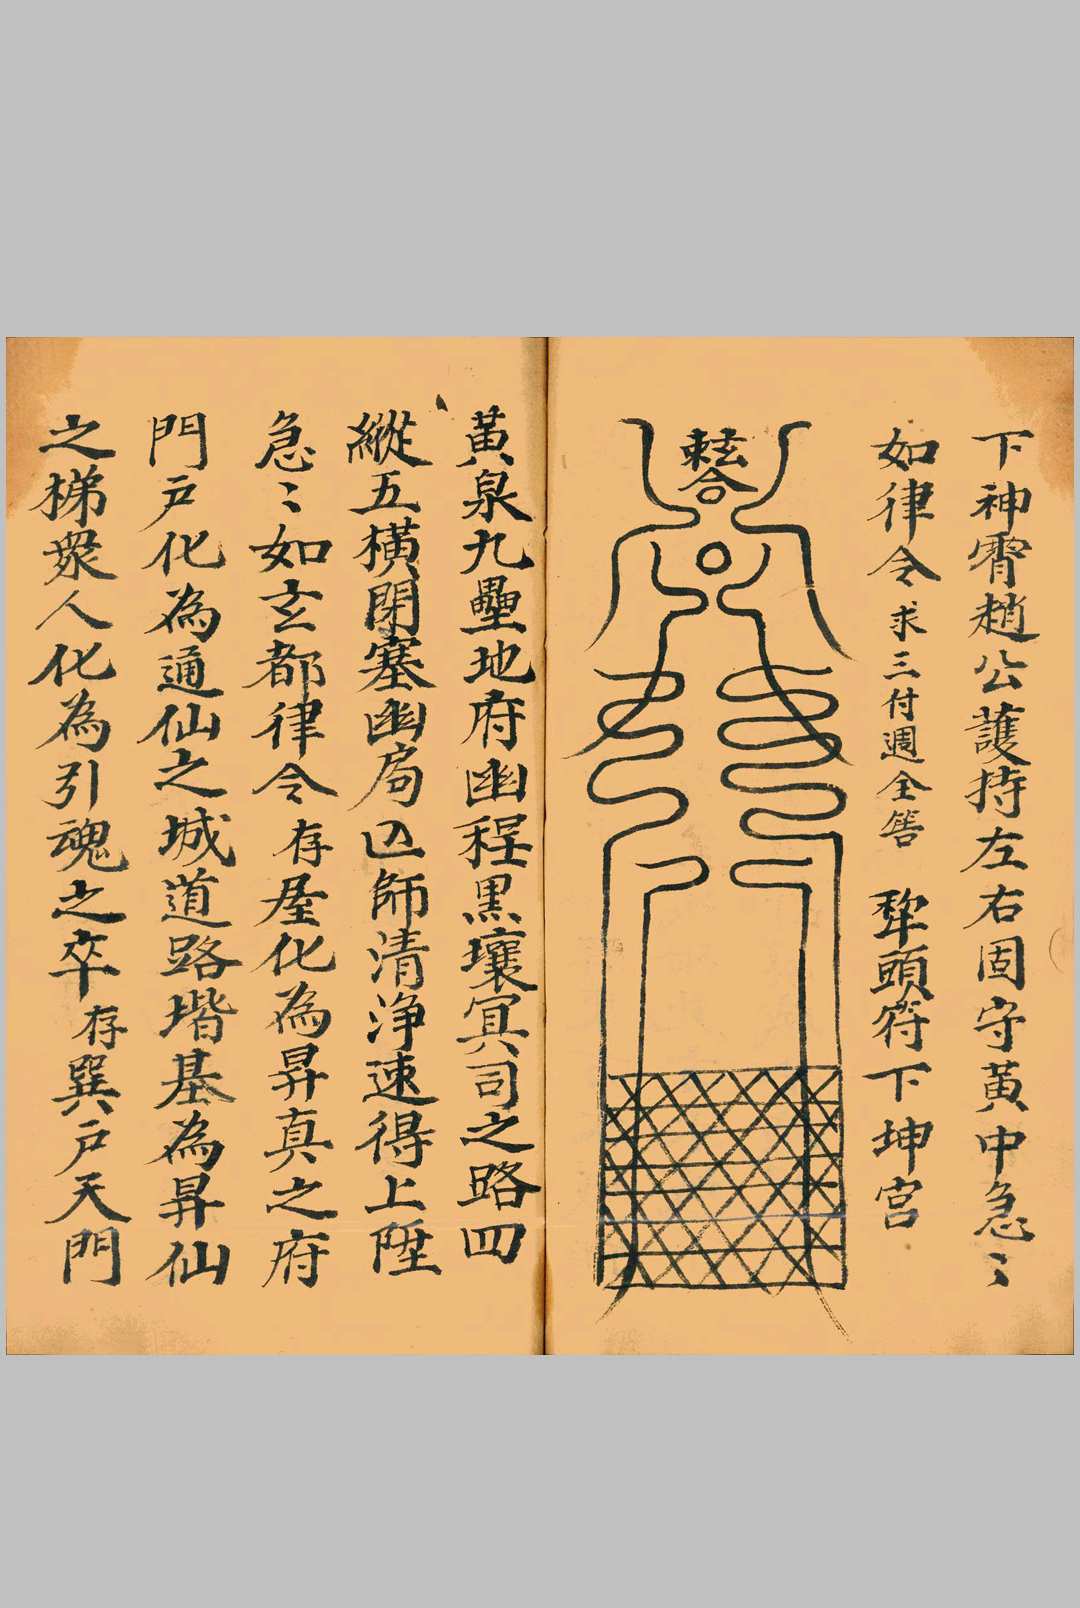 下神霄趙公護持左右固守黃中急〻
如律令 求三付週全筶 犂頭符下坤宮
敕合
黃泉九壘地府幽程黑壤冥司之路四
縱五橫閉塞幽局 師清淨速得上陞
急〻如玄都律令 存屋化為昇真之府
門戶化為通仙之城道路堦基為昇仙
之梯衆人化為引魂之卒 存巽戶天門